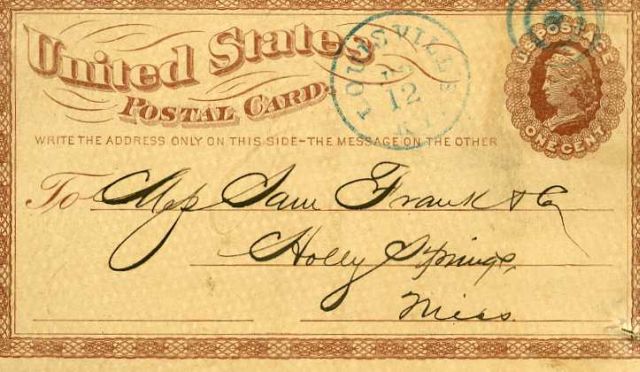 United States
POSTAL CARD.
U.S. POSTAGE
ONE CENT
LOUISVILLE
12
KY
WRITE THE ADDRESS ONLY ON THIS SIDE-THE MESSAGE ON THE OTHER
To Mess Sam Frank & Co
Holly Springs,
Miss.